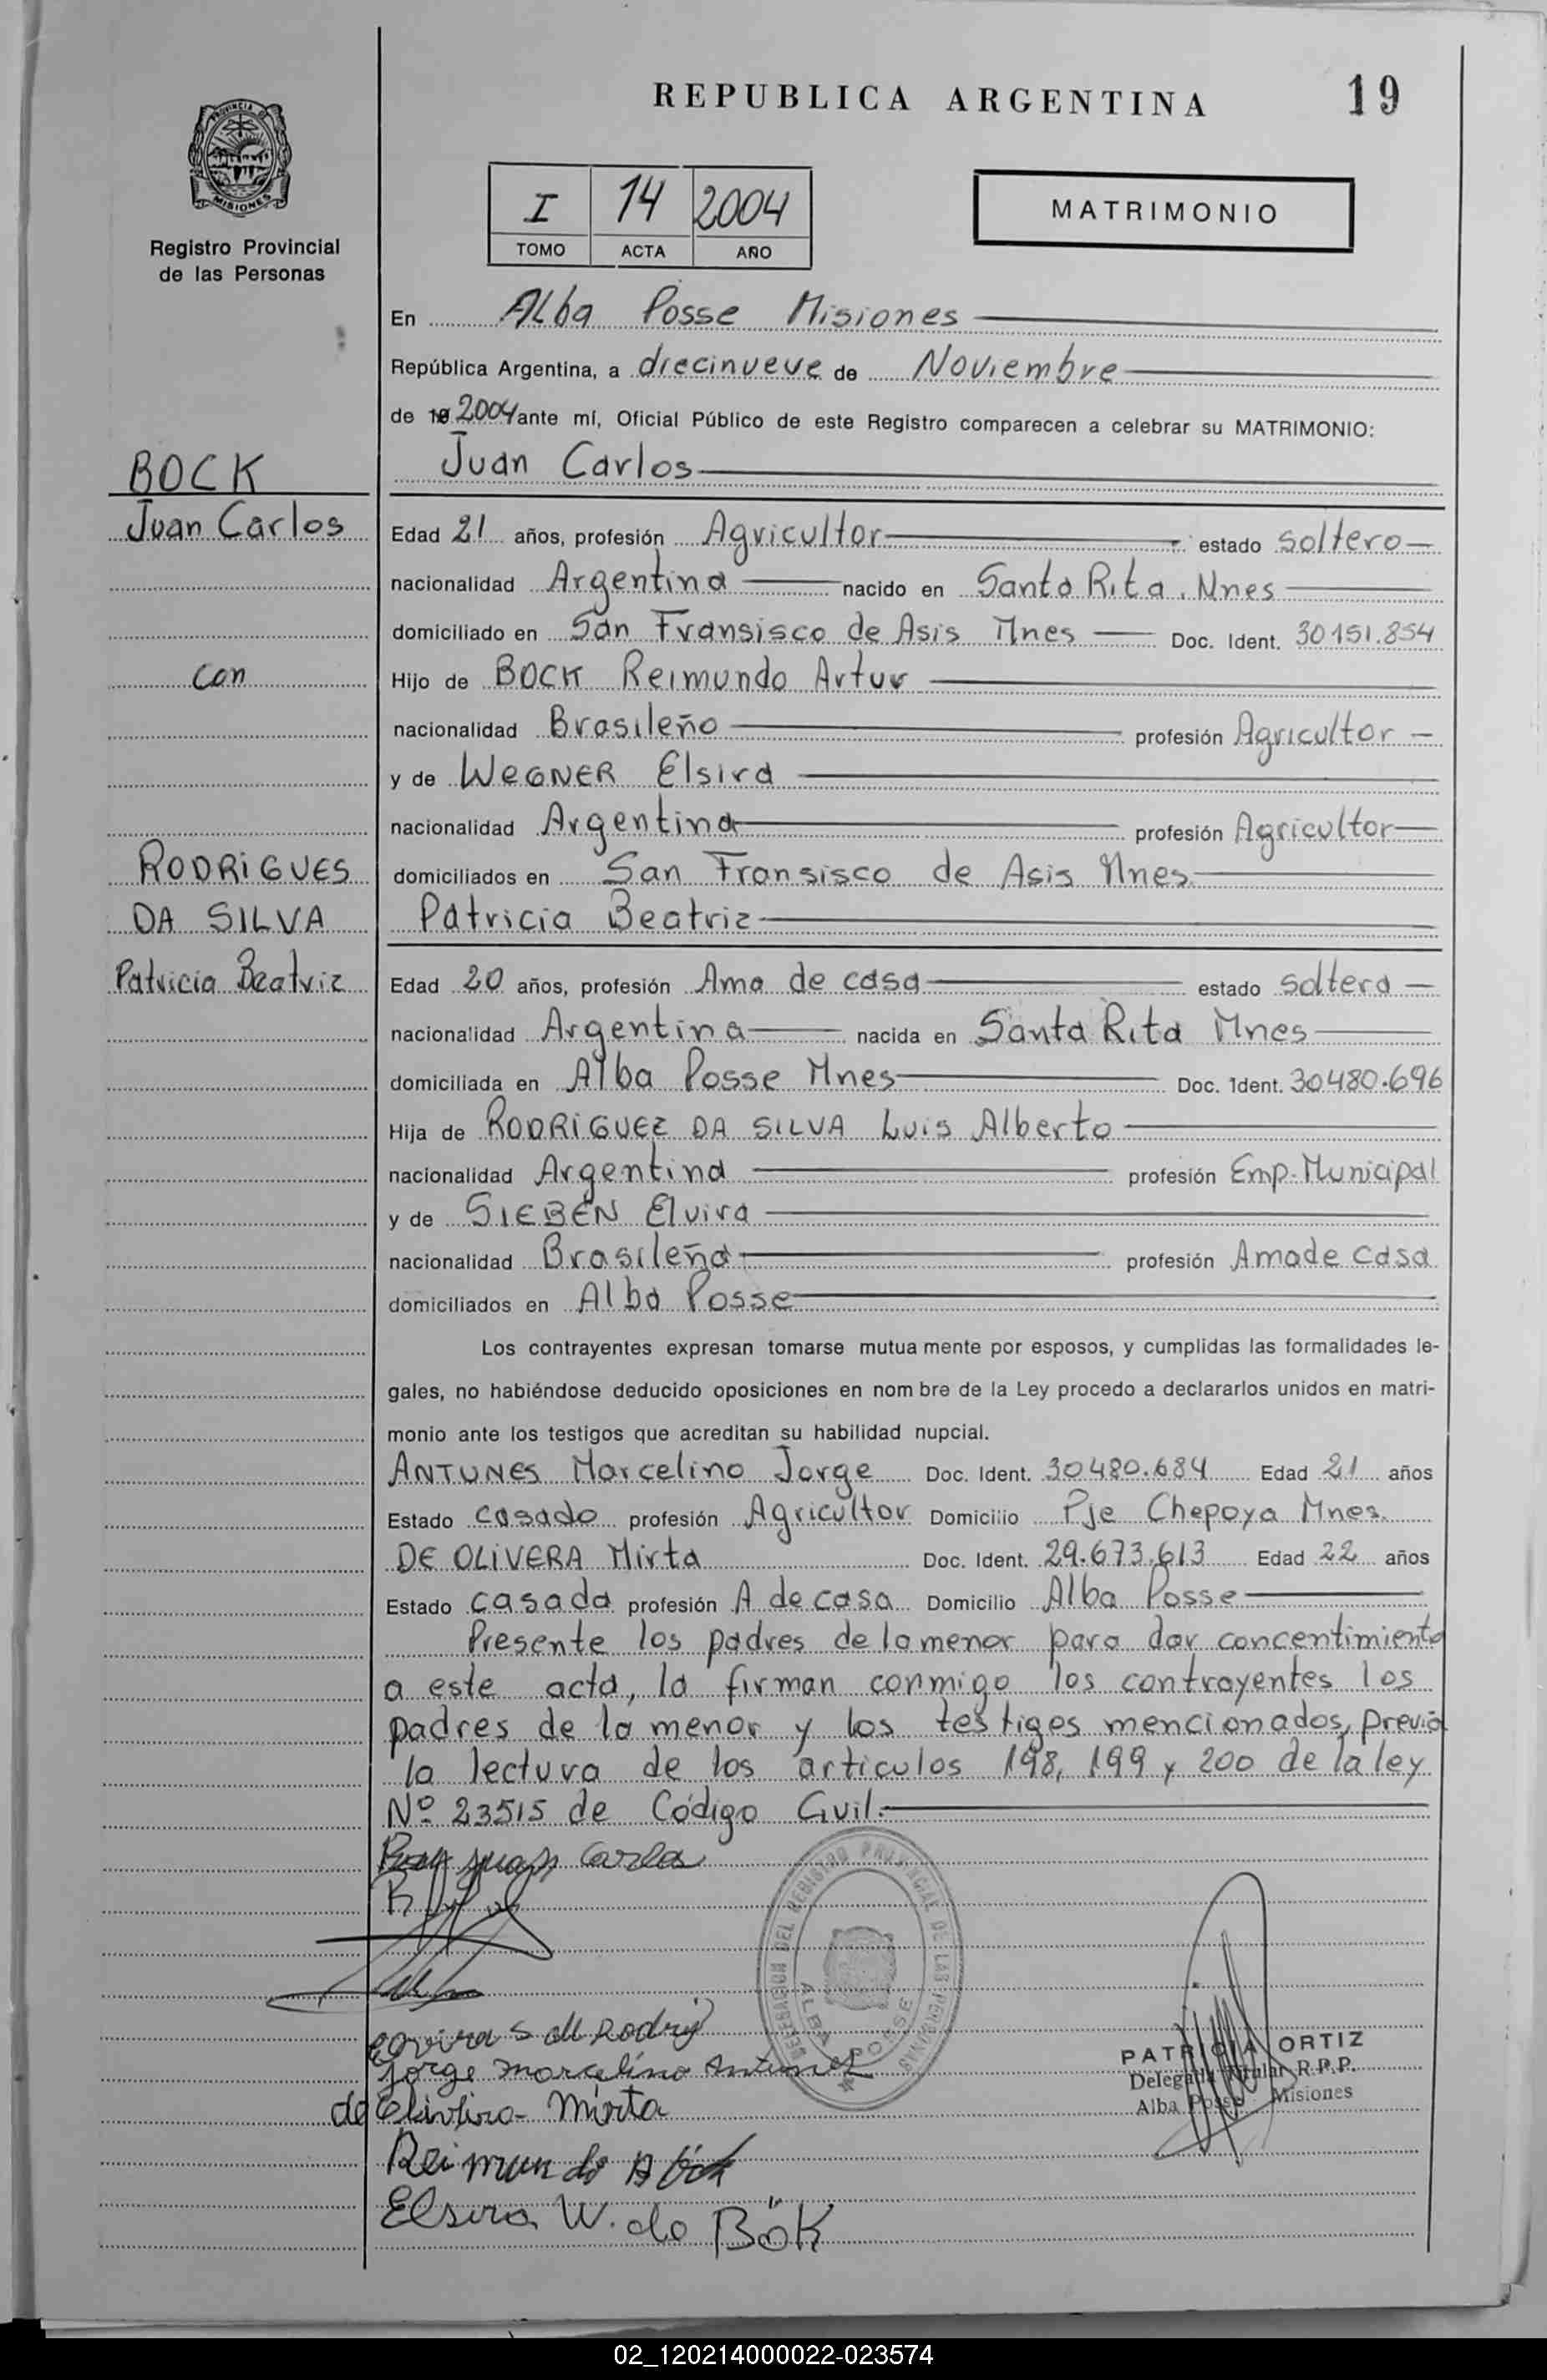 REPUBLICA ARGENTINA
19
PROVINCIA DE
MISIONES
Registro Provincial
de las Personas
I 14 2004
TOMO ACTA AÑO
MATRIMONIO
En Alba Posse Misiones
República Argentina, a diecinueve de Noviembre
de 19 2004 ante mí, Oficial Público de este Registro comparecen a celebrar su MATRIMONIO:
BOCK
Juan Carlos
Juan Carlos
Edad 21 años, profesión Agricultor estado soltero
nacionalidad Argentina nacido en Santa Rita. Mnes
domiciliado en San Fransisco de Asis Mnes Doc. Ident. 30151.854
con
Hijo de BOCK Reimundo Artur
nacionalidad Brasileño profesión Agricultor
y de WEGNER Elsira
nacionalidad Argentina profesión Agricultor
RODRIGUES
domiciliados en San Fransisco de Asis Mnes
DA SILVA
Patricia Beatriz
Patricia Beatriz
Edad 20 años, profesión Ama de casa estado soltera
nacionalidad Argentina nacida en Santa Rita Mnes
domiciliada en Alba Posse Mnes Doc. Ident. 30480.696
Hija de RODRIGUEZ DA SILVA Luis Alberto
nacionalidad Argentina profesión Emp. Municipal
y de SIEBEN Elvira
nacionalidad Brasileña profesión Ama de casa
domiciliados en Alba Posse
Los contrayentes expresan tomarse mutua mente por esposos, y cumplidas las formalidades le-
gales, no habiéndose deducido oposiciones en nom bre de la Ley procedo a declararlos unidos en matri-
monio ante los testigos que acreditan su habilidad nupcial.
ANTUNES Marcelino Jorge Doc. Ident. 30480.684 Edad 21 años
Estado casado profesión Agricultor Domicilio Pje Chepoya Mnes.
DE OLIVERA Mirta Doc. Ident. 29.673.613 Edad 22 años
Estado casada profesión A de casa Domicilio Alba Posse
Presente los padres de la menor para dar concentimiento
a este acta, la firman conmigo los contrayentes los
padres de la menor y los testigos mencionados, previa
la lectura de los articulos 198, 199 y 200 de la ley
Nº 23515 de Código Civil.
Juan Carlos
DELEGACION DEL REGISTRO PROVINCIAL DE LAS PERSONAS
ALBA POSSE
Jorge Marcelino Antunez
de Mirta
PATRICIA ORTIZ
Delegada Titular R.P.P.
Alba Posse Misiones
Reimundo A
Elsira W. de BöK
02_120214000022-023574